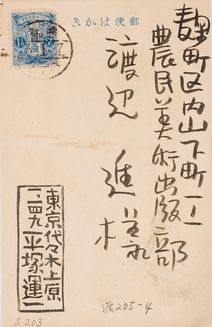 郵便はかき
麹町区内山下町一ノ一
農民美術出版部
渡辺進様
東京代々木上原
一、二四九
平塚運一
落205-4
S 203